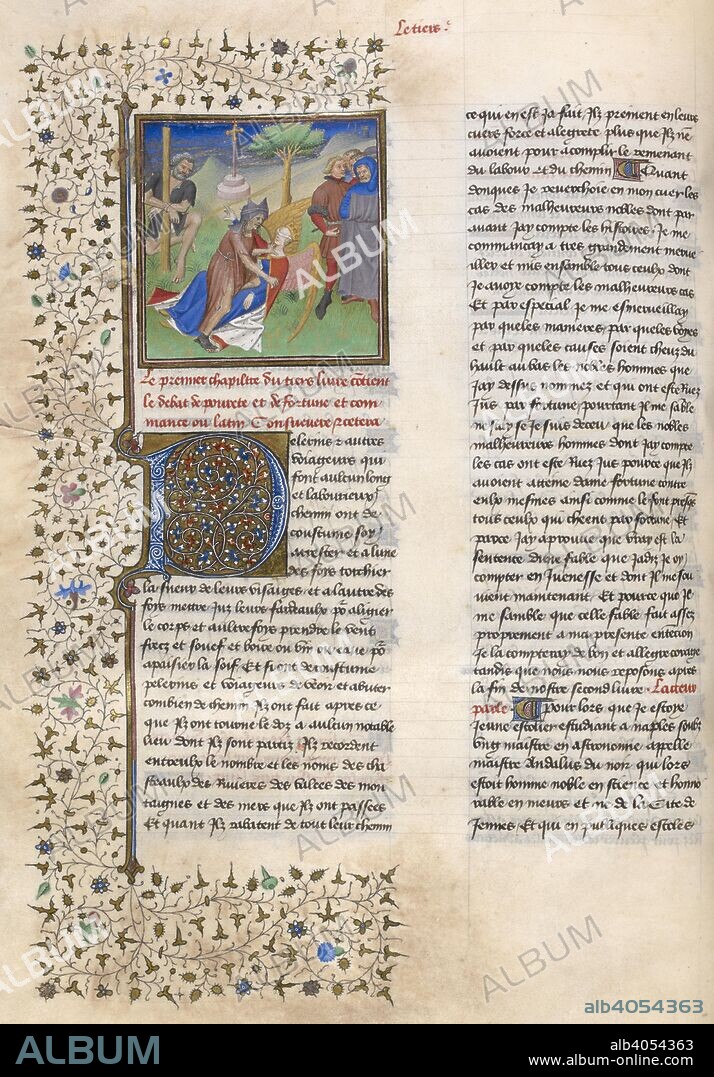 Le tiers
Le premier chapiltre du tiers livre cōtient
le debat de povrete et de fortune et com
mance ou latin Consueuere &cetera
Pelerins & autres
voiageurs qui
font aulcun long
et laborieux
chemin ont de
coustume soy
arrester et a lune
des foys torchier
la sueur de leurs visaiges et a lautre des
foys mettre Jus leurs fardeaulx po aligier
le corps et aultreffoys prendre le vent
frecz et souef et boire ou vin ou eaue po
apaisier la soif Et si ont de coustume
pelerins et voiageurs de veoir et adviser
combien de chemin Ilz ont fait apres ce
que Ilz ont tourne le doz a aulcun notable
lieu dont Ilz sont partiz Ilz recordent
entreulx le nombre et les noms des cha
steaulx des Rivieres des valees des mon
taignes et des mers que Ilz ont passees
Et quant Ilz rabatent de tout leur chemin
ce qui en est Ja fait Ilz preinent en leurs
cuers force et alegrete plus que Ilz nē
avoient pour acomplir le remenant
du labour et du chemin Quant
donques Je reverchoie en mon cuer les
cas des malheureux nobles dont par
avant Jay compte les histoires Je me
commancay a tres grandement merve
illier et mis ensemble tous ceulx dont
Je avoye compte les malheureux cas
Et par especial Je me esmerveillay
par queles manieres par queles voyes
et par queles causes soient cheuz du
hault au bas les nobles hommes que
Jay dessus nommez et qui ont este Ruez
Jus par fortune pourtant Il me sāble
ne scay se Je suis deceu que les nobles
malheureux hommes dont Jay compte
les cas ont este Ruez Jus pource que Ilz
avoient atteine dame fortune contre
eulx mesmes ainsi comme le font presqs
tous ceulx qui cheent par fortune Et
parce Jay aprouve que vray est la
sentence dune fable que Jadiz Je oy
compter en Juenesse et dont Il me sou
vient maintenant Et pource que Je
me samble que celle fable fait assez
proprement a ma presente entencion
Je la compteray de bon et allegre corage
tandis que nous nous reposons apres
la fin de nostre second livre Lacteur
parle Pour lors que Je estoye
Jeune escolier estudiant a naples soubz
ung maistre en astronomie appelle
maistre Andalus du noir qui lors
estoit homme noble en science et honno
rable en meurs et ne de la Cite de
Jennes Et qui en publiques escoles
ALBUM
alb4054363
ALBUM
alb4054363
www.album-online.com